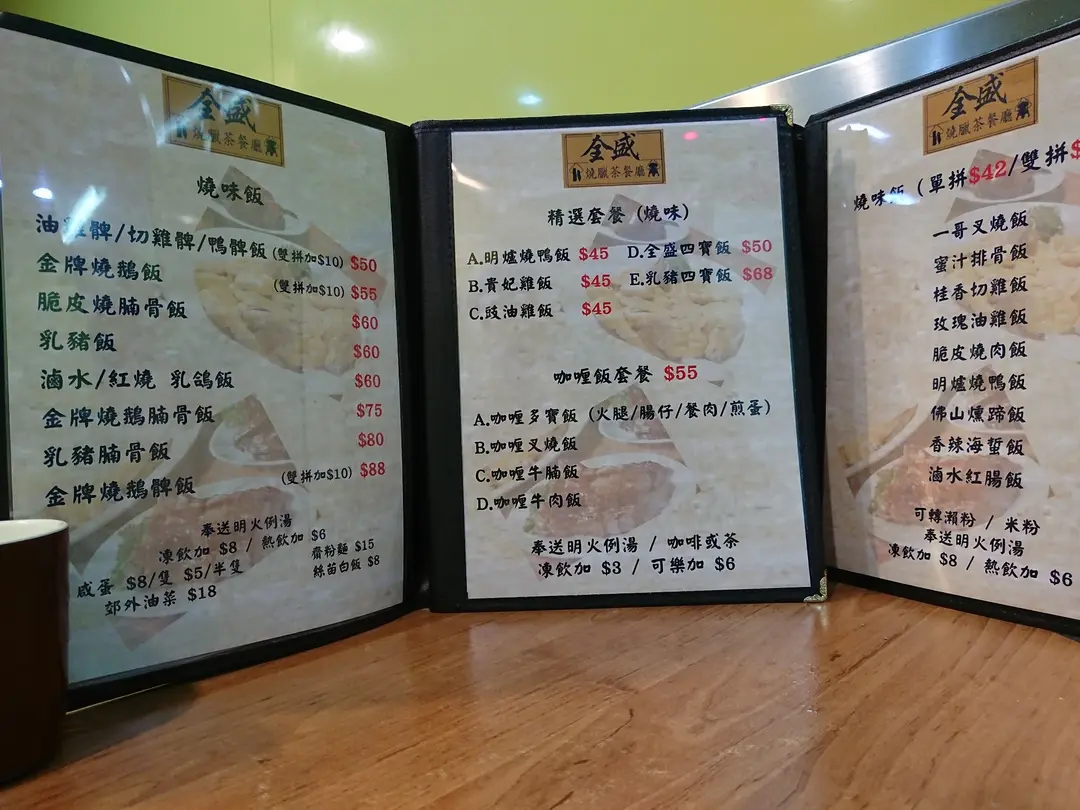 全盛
燒臘茶餐廳
燒味飯
油雞髀/切雞髀/鴨髀飯 (雙拼加$10) $50
金牌燒鵝飯 (雙拼加$10) $55
脆皮燒腩骨飯 $60
乳豬飯 $60
滷水/紅燒 乳鴿飯 $60
金牌燒鵝腩骨飯 $75
乳豬腩骨飯 $80
金牌燒鵝髀飯 (雙拼加$10) $88
奉送明火例湯
凍飲加 $8 / 熱飲加 $6
齋粉麵 $15
絲苗白飯 $8
咸蛋 $8/隻 $5/半隻
郊外油菜 $18
全盛
燒臘茶餐廳
精選套餐 (燒味)
A.明爐燒鴨飯 $45 D.全盛四寶飯 $50
B.貴妃雞飯 $45 E.乳豬四寶飯 $68
C.豉油雞飯 $45
咖喱飯套餐 $55
A.咖喱多寶飯 (火腿/腸仔/餐肉/煎蛋)
B.咖喱叉燒飯
C.咖喱牛腩飯
D.咖喱牛肉飯
奉送明火例湯 / 咖啡或茶
凍飲加 $3 / 可樂加 $6
全盛
燒臘茶餐廳
燒味飯 (單拼$42/雙拼$
一哥叉燒飯
蜜汁排骨飯
桂香切雞飯
玫瑰油雞飯
脆皮燒肉飯
明爐燒鴨飯
佛山燻蹄飯
香辣海蜇飯
滷水紅腸飯
可轉瀨粉 / 米粉
奉送明火例湯
凍飲加 $8 / 熱飲加 $6